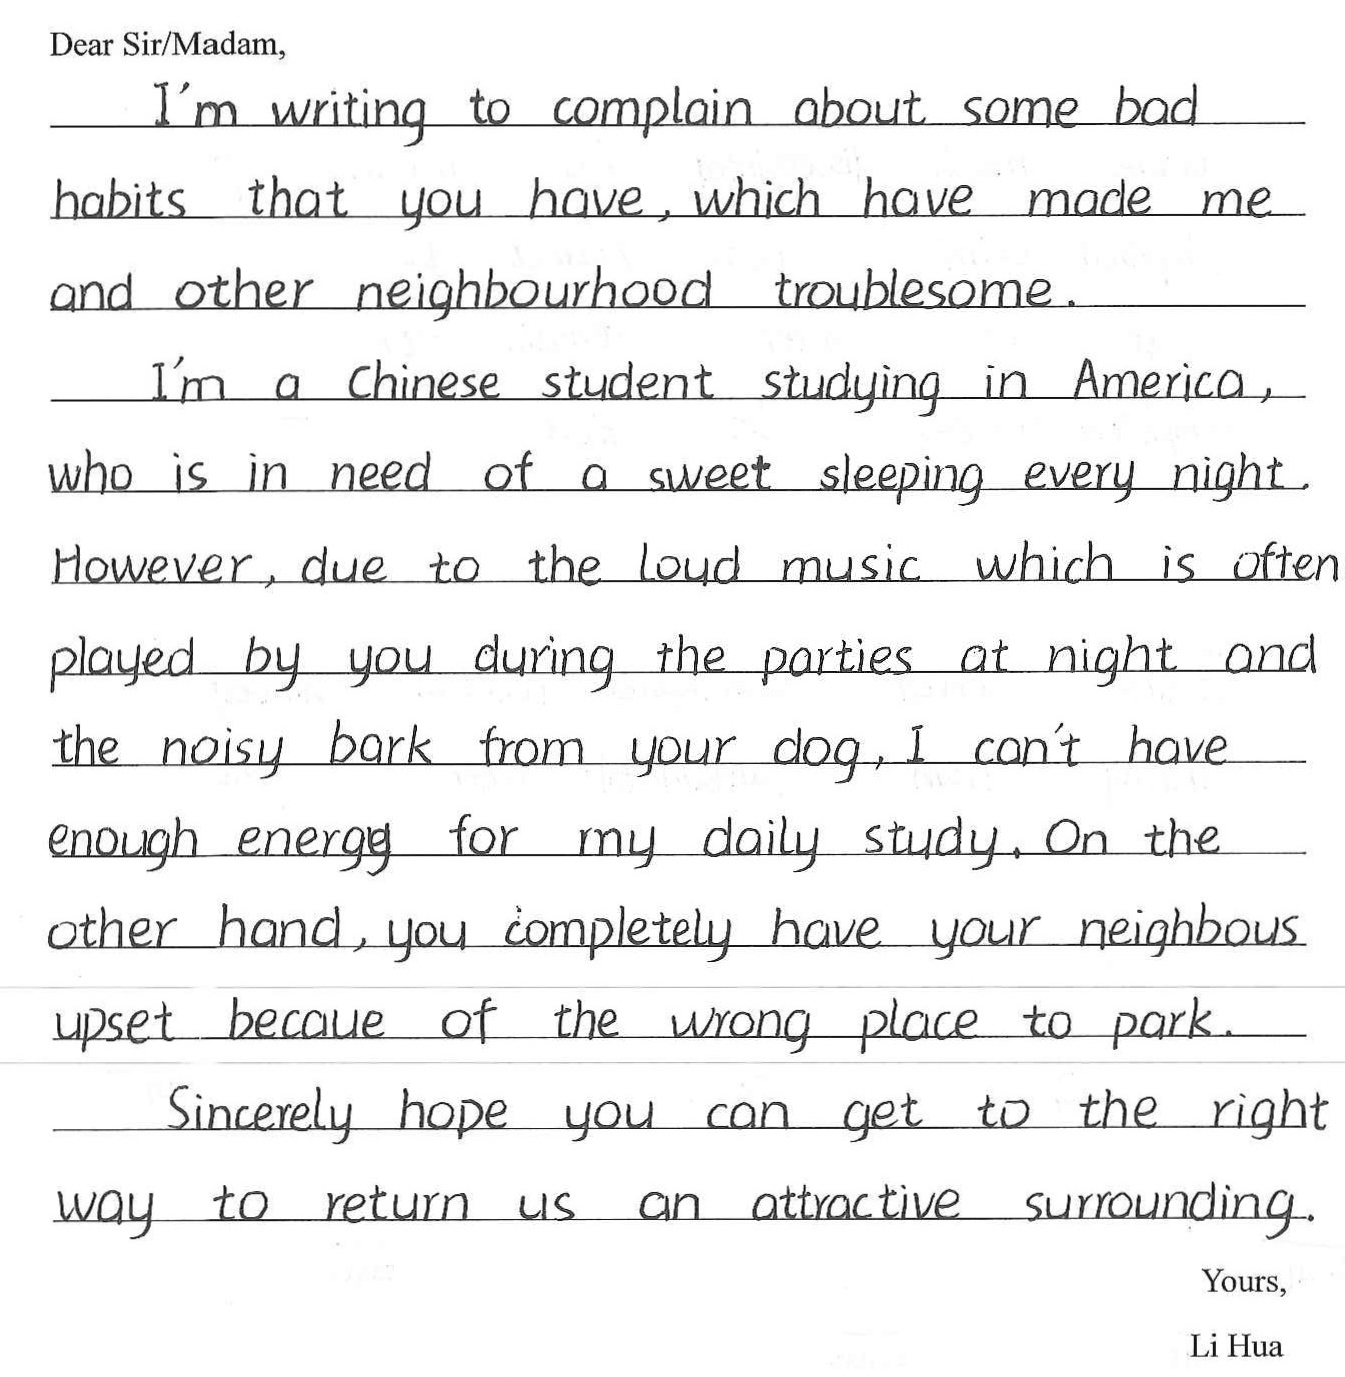 Dear Sir/Madam,
I'm writing to complain about some bad
habits that you have, which have made me
and other neighbourhood troublesome.
I'm a Chinese student studying in America,
who is in need of a sweet sleeping every night.
However, due to the loud music which is often
played by you during the parties at night and
the noisy bark from your dog, I can't have
enough energy for my daily study. On the
other hand, you completely have your neighbous
upset becaue of the wrong place to park.
Sincerely hope you can get to the right
way to return us an attractive surrounding.
Yours,
Li Hua